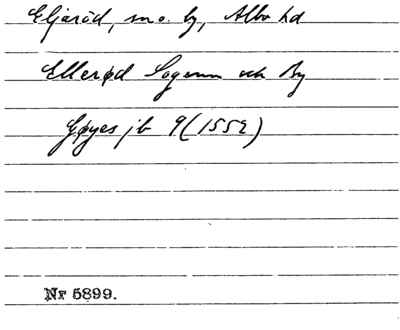 Eljaröd, sn o. by, Albo hd
Ellerød Sogenn och By
Gøyes jb 9 (1552)
Nr 5899.